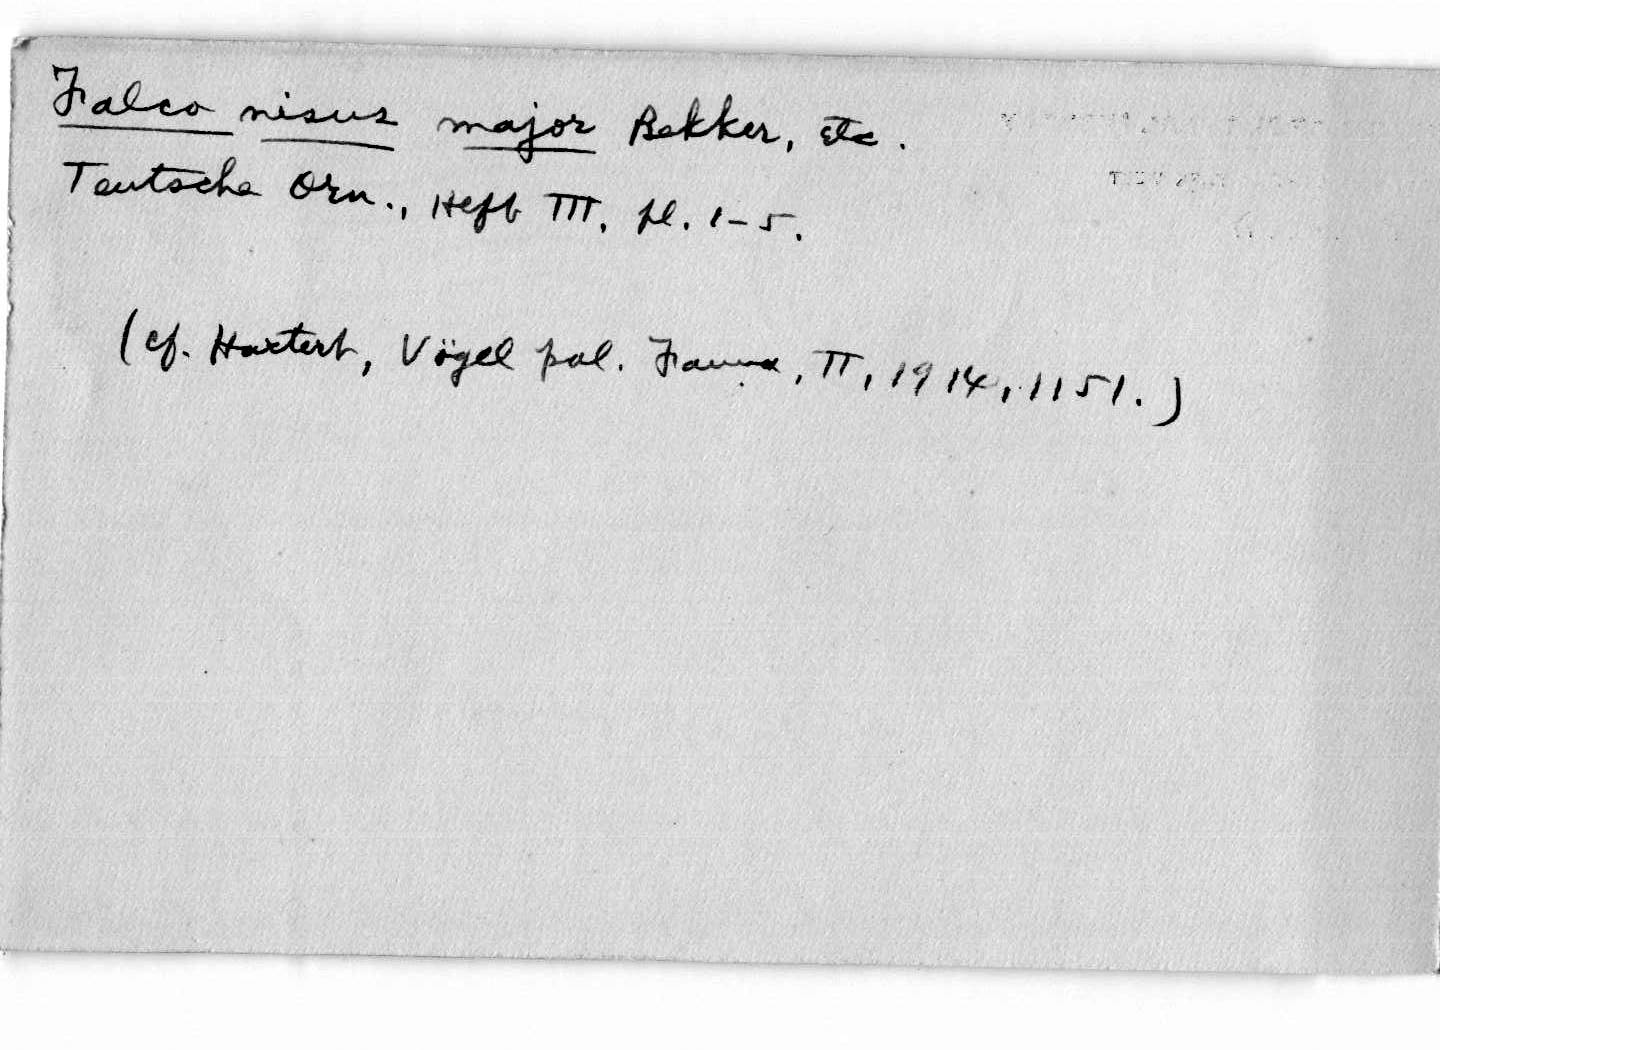 Falco nisus major Bekker, etc.
Teutsche Orn., Heft III, pl. 1-5.
(cf. Hartert, Vögel pal. Fauna, II, 1914, 1151.)